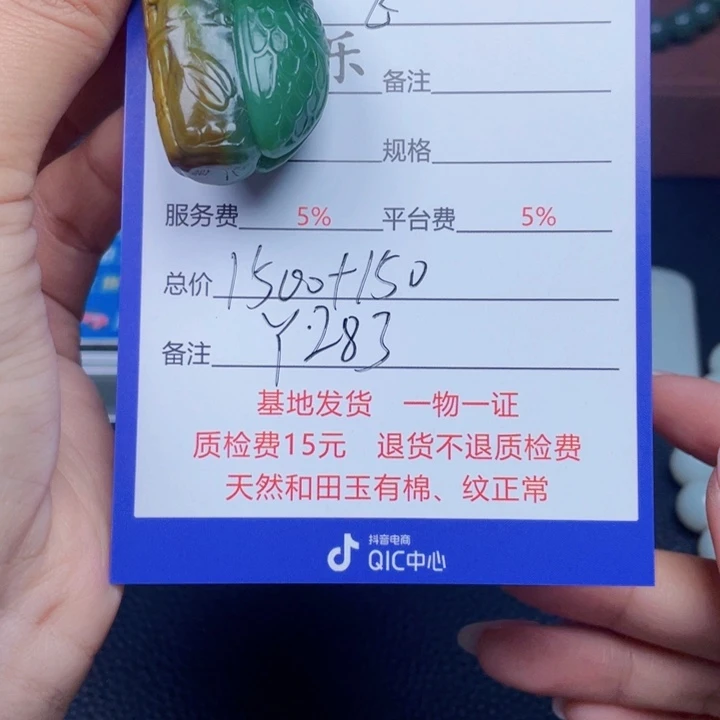 乐 备注
规格
服务费 5% 平台费 5%
总价 1500+150
备注 Y·283
基地发货 一物一证
质检费15元 退货不退质检费
天然和田玉有棉、纹正常
抖音电商
QIC中心